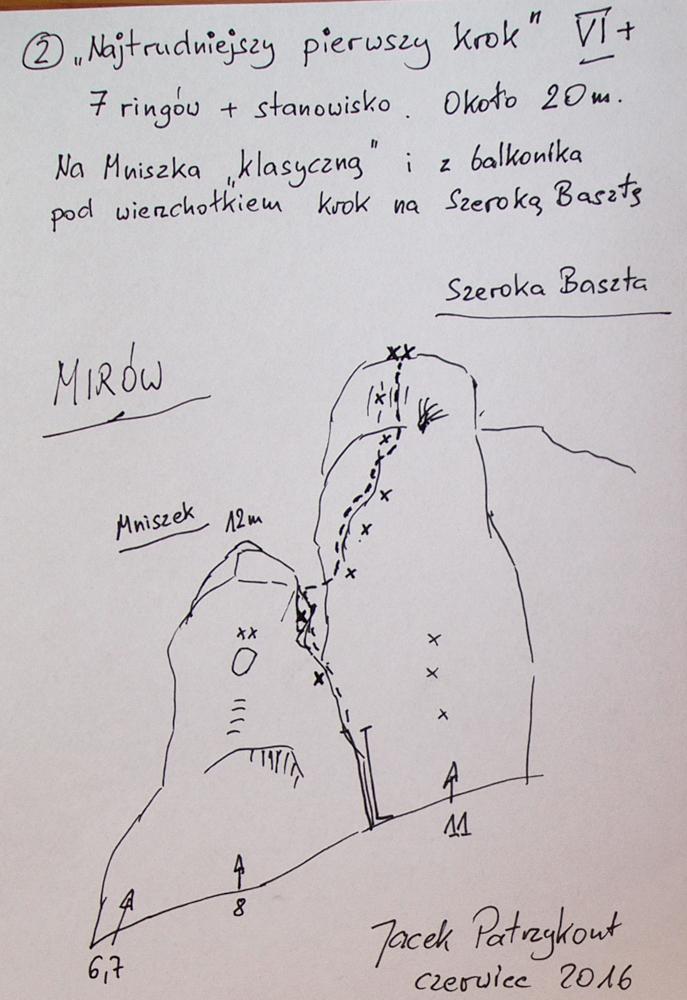 ② „Najtrudniejszy pierwszy krok" VI+
7 ringów + stanowisko. Około 20m.
Na Mniszka „klasyczną" i z balkonika
pod wierzchołkiem krok na Szeroką Basztę
Szeroka Baszta
MIRÓW
xx
Mniszek 12m
xx
11
8
6,7
Jacek Patrzykont
czerwiec 2016